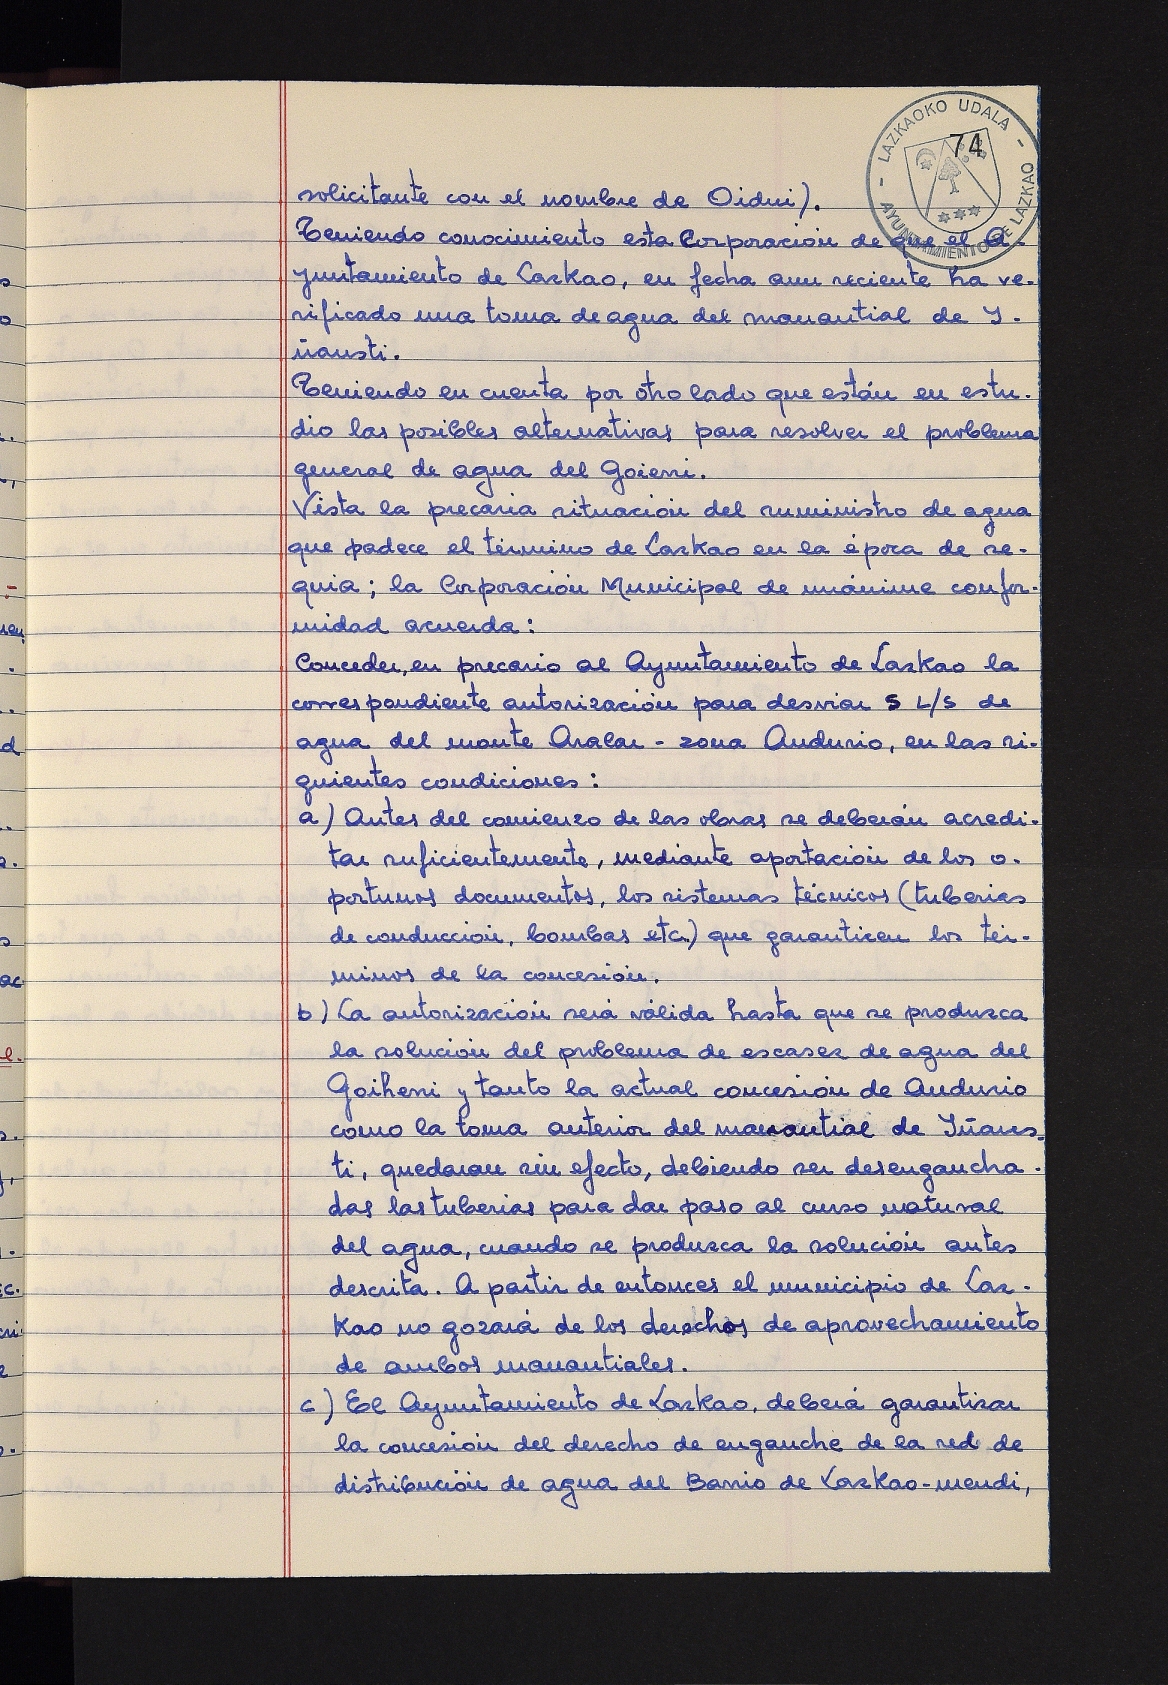 - LAZKAOKO UDALA -
AYUNTAMIENTO DE LAZKAO
74
solicitante con el nombre de Oidui).
Teniendo conocimiento esta Corporación de que el A-
yuntamiento de Lazkao, en fecha aun reciente ha ve-
rificado una toma de agua del manantial de I-
ñausti.
Teniendo en cuenta por otro lado que están en estu-
dio las posibles alternativas para resolver el problema
general de agua del Goierri.
Vista la precaria situación del suministro de agua
que padece el término de Lazkao en la época de se-
quia; la Corporación Municipal de unánime confor-
midad acuerda:
Conceder, en precario al Ayuntamiento de Lazkao la
correspondiente autorización para desviar 5 L/S de
agua del monte Aralar - zona Andurio, en las si-
guientes condiciones:
a) Antes del comienzo de las obras se deberán acredi-
tar suficientemente, mediante aportación de los o-
portunos documentos, los sistemas técnicos (tuberias
de conducción, bombas etc.) que garanticen los tér-
minos de la concesión.
b) La autorización será válida hasta que se produzca
la solución del problema de escasez de agua del
Goiherri y tanto la actual concesión de Andurio
como la toma anterior del manantial de Iñaus-
ti, quedaran sin efecto, debiendo ser desengancha-
das las tuberias para dar paso al curso natural
del agua, cuando se produzca la solución antes
descrita. A partir de entonces el municipio de Laz-
kao no gozará de los derechos de aprovechamiento
de ambos manantiales.
c) El Ayuntamiento de Lazkao, deberá garantizar
la concesión del derecho de enganche de la red de
distribución de agua del Barrio de Lazkao-mendi,